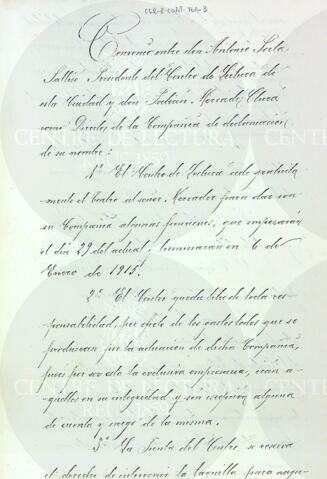 CLR-8 CONT-TEA-3
Convenio entre don Antonio Serla
Sallia Presidente del Centro de Lectura de
esta Ciudad y don Julián Mercader Clucá
como Director de la Compañía de declamación
de su nombre:
1º El Centro de Lectura cede gratuita-
mente el Teatro al señor Mercader para dar con
su Compañía algunas funciones, que empezarán
el día 29 del actual y terminarán en 6 de
Enero de 1915.
2º El Centro queda libre de toda res-
ponsabilidad, por efecto de los gastos todos que se
produzcan por la actuación de dicha Compañía,
pues por ser esta la exclusiva empresaria, irán a-
quellos en su integridad y sin excepción alguna
de cuenta y cargo de la misma.
3º La Junta del Centro, se reserva
el derecho de intervenir la taquilla para asegu-
CENTRE DE LECTURA
CENTRE DE LECTURA